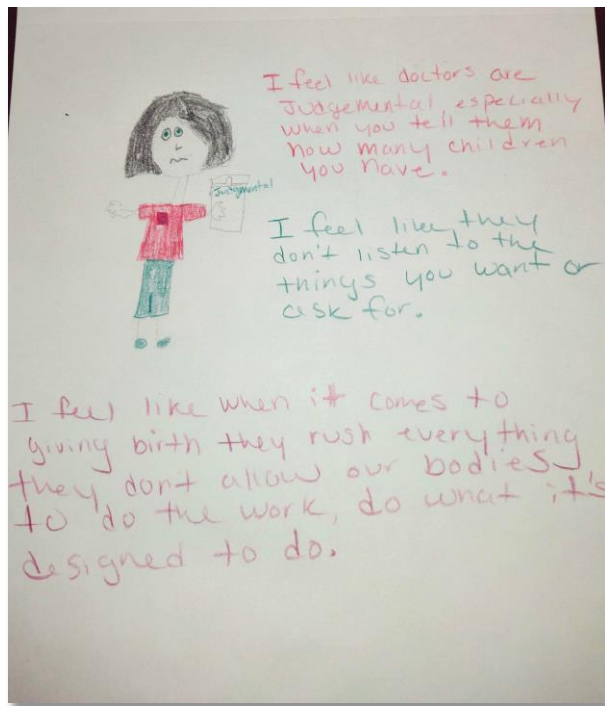 I feel like doctors are
Judgemental, especially
when you tell them
how many children
you have.
Judgmental
I feel like they
don't listen to the
things you want or
ask for.
I feel like when it comes to
giving birth they rush everything
they dont allow our bodies
to do the work, do what it's
designed to do.